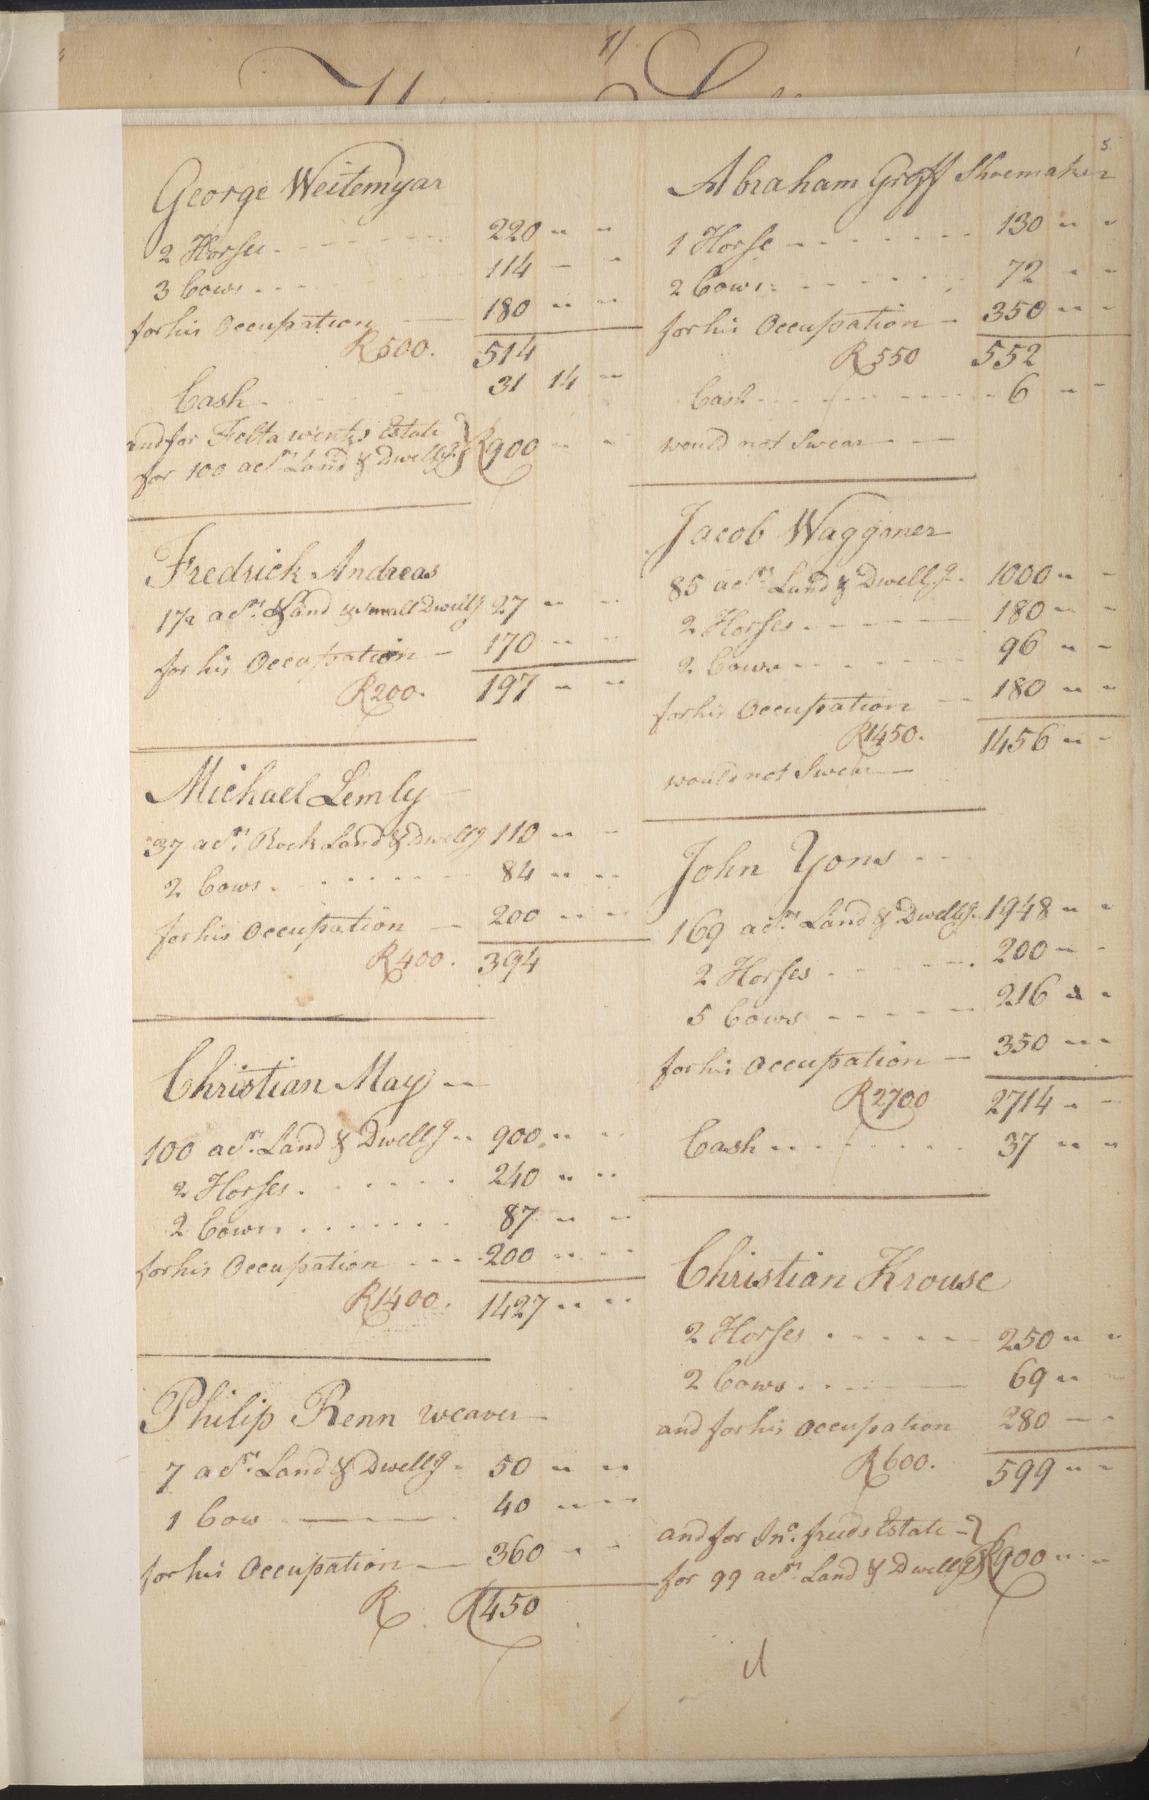 11
5
George Weitemyar
2 Horses 220
3 Cows 114
for his Occupation 180
R500. 514
Cash 31 14
and for Felta wints Estate
for 100 acrs Land & Dwellg. R900
Fredrick Andreas
17a acrs. Land & small Dwellg 27
for his Occupation 170
R200. 197
Michael Lemly
37 acrs. Rock Land & Dwellg 110
2 Cows 84
for his Occupation 200
R400. 394
Christian May
100 acrs. Land & Dwellg 900
2 Horses 240
2 Cows 87
for his Occupation 200
R1400. 1427
Philip Renn weaver
7 acrs. Land & Dwellg 50
1 Cow 40
for his Occupation 360
R R450
Abraham Groff Shoemaker
1 Horse 130
2 Cows 72
for his Occupation 350
R550 552
Cash 6
would not Swear
Jacob Waggoner
85 acrs. Land & Dwellg. 1000
2 Horses 180
2 Cows 96
for his Occupation 180
R1450. 1456
would not Swear
John Yons
169 acrs. Land & Dwellg. 1948
2 Horses 200
5 Cows 216
for his Occupation 350
R2700 2714
Cash 37
Christian Krouse
2 Horses 250
2 Cows 69
and for his Occupation 280
R600. 599
and for Jno. freeds Estate
for 99 acrs. Land & Dwellg R900